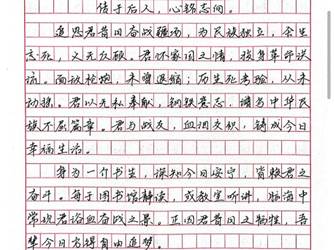 传于后人，心铭志向。
追思君昔日奋战疆场，为民族独立，舍生
忘死，义无反顾。君怀家国之情，投身革命洪
流。面敌枪炮，未曾退缩；历生死考验，从未
动摇。君以无私奉献，钢铁意志，谱写中华民
族不屈篇章。君与战友，血泪交织，铸成今日
幸福生活。
身为一介书生，深知今日安宁，皆赖君之
奋斗。每于图书馆静读，或教室听讲，脑海中
常现君浴血奋战之景。正因君昔日之牺牲，吾
辈今日方得自由追梦。